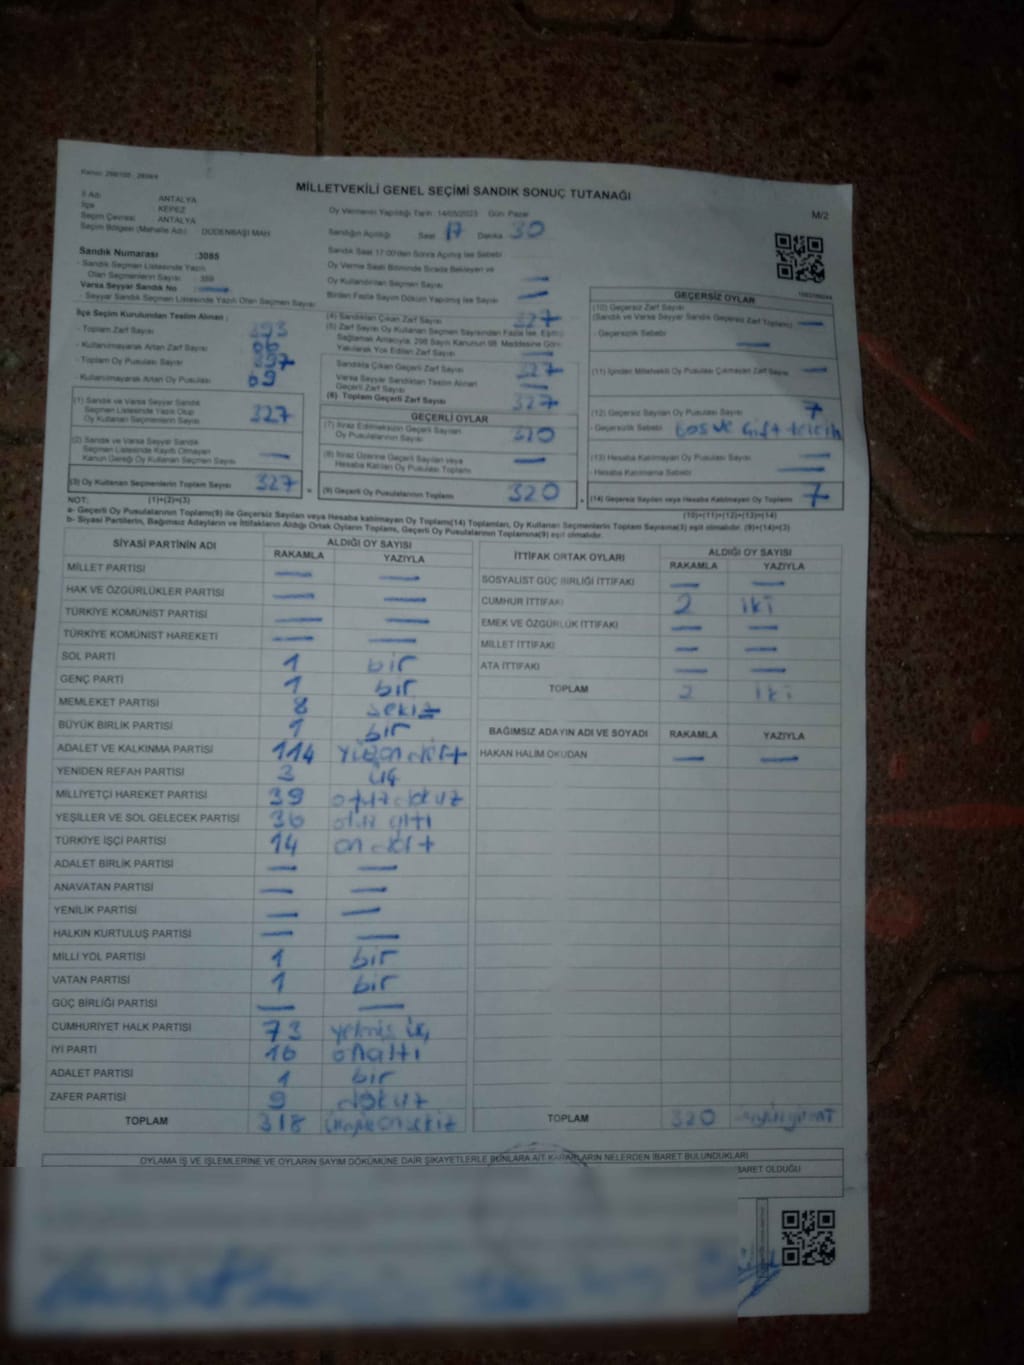 MİLLETVEKİLİ GENEL SEÇİMİ SANDIK SONUÇ TUTANAĞI
M/2
İl Adı ANTALYA
İlçe KEPEZ
Seçim Çevresi ANTALYA
Seçim Bölgesi (Mahalle Adı) DÜDENBAŞI MAH
Oy Vermenin Yapıldığı Tarih :14/05/2023 Gün: Pazar
Sandığın Açıldığı Saat 17 Dakika 30
Sandık Numarası :3085
- Sandık Seçmen Listesinde Yazılı
Olan Seçmenlerin Sayısı
Varsa Seyyar Sandık No
Seyyar Sandık Seçmen Listesinde Yazılı Olan Seçmen Sayısı
Sandık Saat 17:00'den Sonra Açılmış İse Sebebi
Oy Verme Saati Bitiminde Sırada Bekleyen ve
Oy Kullandırılan Seçmen Sayısı —
Birden Fazla Sayım Döküm Yapılmış İse Sayısı —
İlçe Seçim Kurulundan Teslim Alınan :
- Toplam Zarf Sayısı 393
- Kullanılmayarak Artan Zarf Sayısı 66
- Toplam Oy Pusulası Sayısı
- Kullanılmayarak Artan Oy Pusulası 69
(1) Sandık ve Varsa Seyyar Sandık
Seçmen Listesinde Yazılı Olup
Oy Kullanan Seçmenlerin Sayısı 327
(2) Sandık ve Varsa Seyyar Sandık
Seçmen Listesinde Kayıtlı Olmayan
Kanun Gereği Oy Kullanan Seçmen Sayısı —
(3) Oy Kullanan Seçmenlerin Toplam Sayısı 327
(4) Sandıktan Çıkan Zarf Sayısı 327
(5) Zarf Sayısı Oy Kullanan Seçmen Sayısından Fazla İse, Eşitliği
Sağlamak Amacıyla, 298 Sayılı Kanunun 98. Maddesine Göre
Yakılarak Yok Edilen Zarf Sayısı —
Sandıkta Çıkan Geçerli Zarf Sayısı 327
Varsa Seyyar Sandıktan Teslim Alınan
Geçerli Zarf Sayısı —
(6) Toplam Geçerli Zarf Sayısı 327
GEÇERLİ OYLAR
(7) İtiraz Edilmeksizin Geçerli Sayılan
Oy Pusulalarının Sayısı 320
(8) İtiraz Üzerine Geçerli Sayılan veya
Hesaba Katılan Oy Pusulası Toplamı —
(9) Geçerli Oy Pusulalarının Toplamı 320
GEÇERSİZ OYLAR
(10) Geçersiz Zarf Sayısı
(Sandık ve Varsa Seyyar Sandık Geçersiz Zarf Toplamı) —
- Geçersizlik Sebebi —
(11) İçinden Milletvekili Oy Pusulası Çıkmayan Zarf Sayısı —
(12) Geçersiz Sayılan Oy Pusulası Sayısı 7
- Geçersizlik Sebebi
(13) Hesaba Katılmayan Oy Pusulası Sayısı —
- Hesaba Katılmama Sebebi —
(14) Geçersiz Sayılan veya Hesaba Katılmayan Oy Toplamı 7
NOT: (1)+(2)=(3)
(10)+(11)+(12)+(13)=(14)
a- Geçerli Oy Pusulalarının Toplamı(9) ile Geçersiz Sayılan veya Hesaba katılmayan Oy Toplamı(14) Toplamları, Oy Kullanan Seçmenlerin Toplam Sayısına(3) eşit olmalıdır. (9)+(14)=(3)
b- Siyasi Partilerin, Bağımsız Adayların ve İttifakların Aldığı Ortak Oyların Toplamı, Geçerli Oy Pusulalarının Toplamına(9) eşit olmalıdır.
SİYASİ PARTİNİN ADI ALDIĞI OY SAYISI
RAKAMLA YAZIYLA
MİLLET PARTİSİ — —
HAK VE ÖZGÜRLÜKLER PARTİSİ — —
TÜRKİYE KOMÜNİST PARTİSİ — —
TÜRKİYE KOMÜNİST HAREKETİ — —
SOL PARTİ 1 bir
GENÇ PARTİ 1 bir
MEMLEKET PARTİSİ 8 sekiz
BÜYÜK BİRLİK PARTİSİ 1 bir
ADALET VE KALKINMA PARTİSİ 114 yüzondört
YENİDEN REFAH PARTİSİ 3 üç
MİLLİYETÇİ HAREKET PARTİSİ 39 otuz dokuz
YEŞİLLER VE SOL GELECEK PARTİSİ 36 otuz altı
TÜRKİYE İŞÇİ PARTİSİ 14 on dört
ADALET BİRLİK PARTİSİ — —
ANAVATAN PARTİSİ — —
YENİLİK PARTİSİ — —
HALKIN KURTULUŞ PARTİSİ — —
MİLLİ YOL PARTİSİ 1 bir
VATAN PARTİSİ 1 bir
GÜÇ BİRLİĞİ PARTİSİ — —
CUMHURİYET HALK PARTİSİ 73 yetmiş üç
İYİ PARTİ 16 onaltı
ADALET PARTİSİ 1 bir
ZAFER PARTİSİ 9 dokuz
TOPLAM 318 üçyüzonsekiz
İTTİFAK ORTAK OYLARI ALDIĞI OY SAYISI
RAKAMLA YAZIYLA
SOSYALİST GÜÇ BİRLİĞİ İTTİFAKI — —
CUMHUR İTTİFAKI 2 iki
EMEK VE ÖZGÜRLÜK İTTİFAKI — —
MİLLET İTTİFAKI — —
ATA İTTİFAKI — —
TOPLAM 2 iki
BAĞIMSIZ ADAYIN ADI VE SOYADI RAKAMLA YAZIYLA
HAKAN HALİM OKUDAN — —
TOPLAM 320
OYLAMA İŞ VE İŞLEMLERİNE VE OYLARIN SAYIM DÖKÜMÜNE DAİR ŞİKAYETLERLE BUNLARA AİT KARARLARIN NELERDEN İBARET BULUNDUKLARI
BARET OLDUĞU